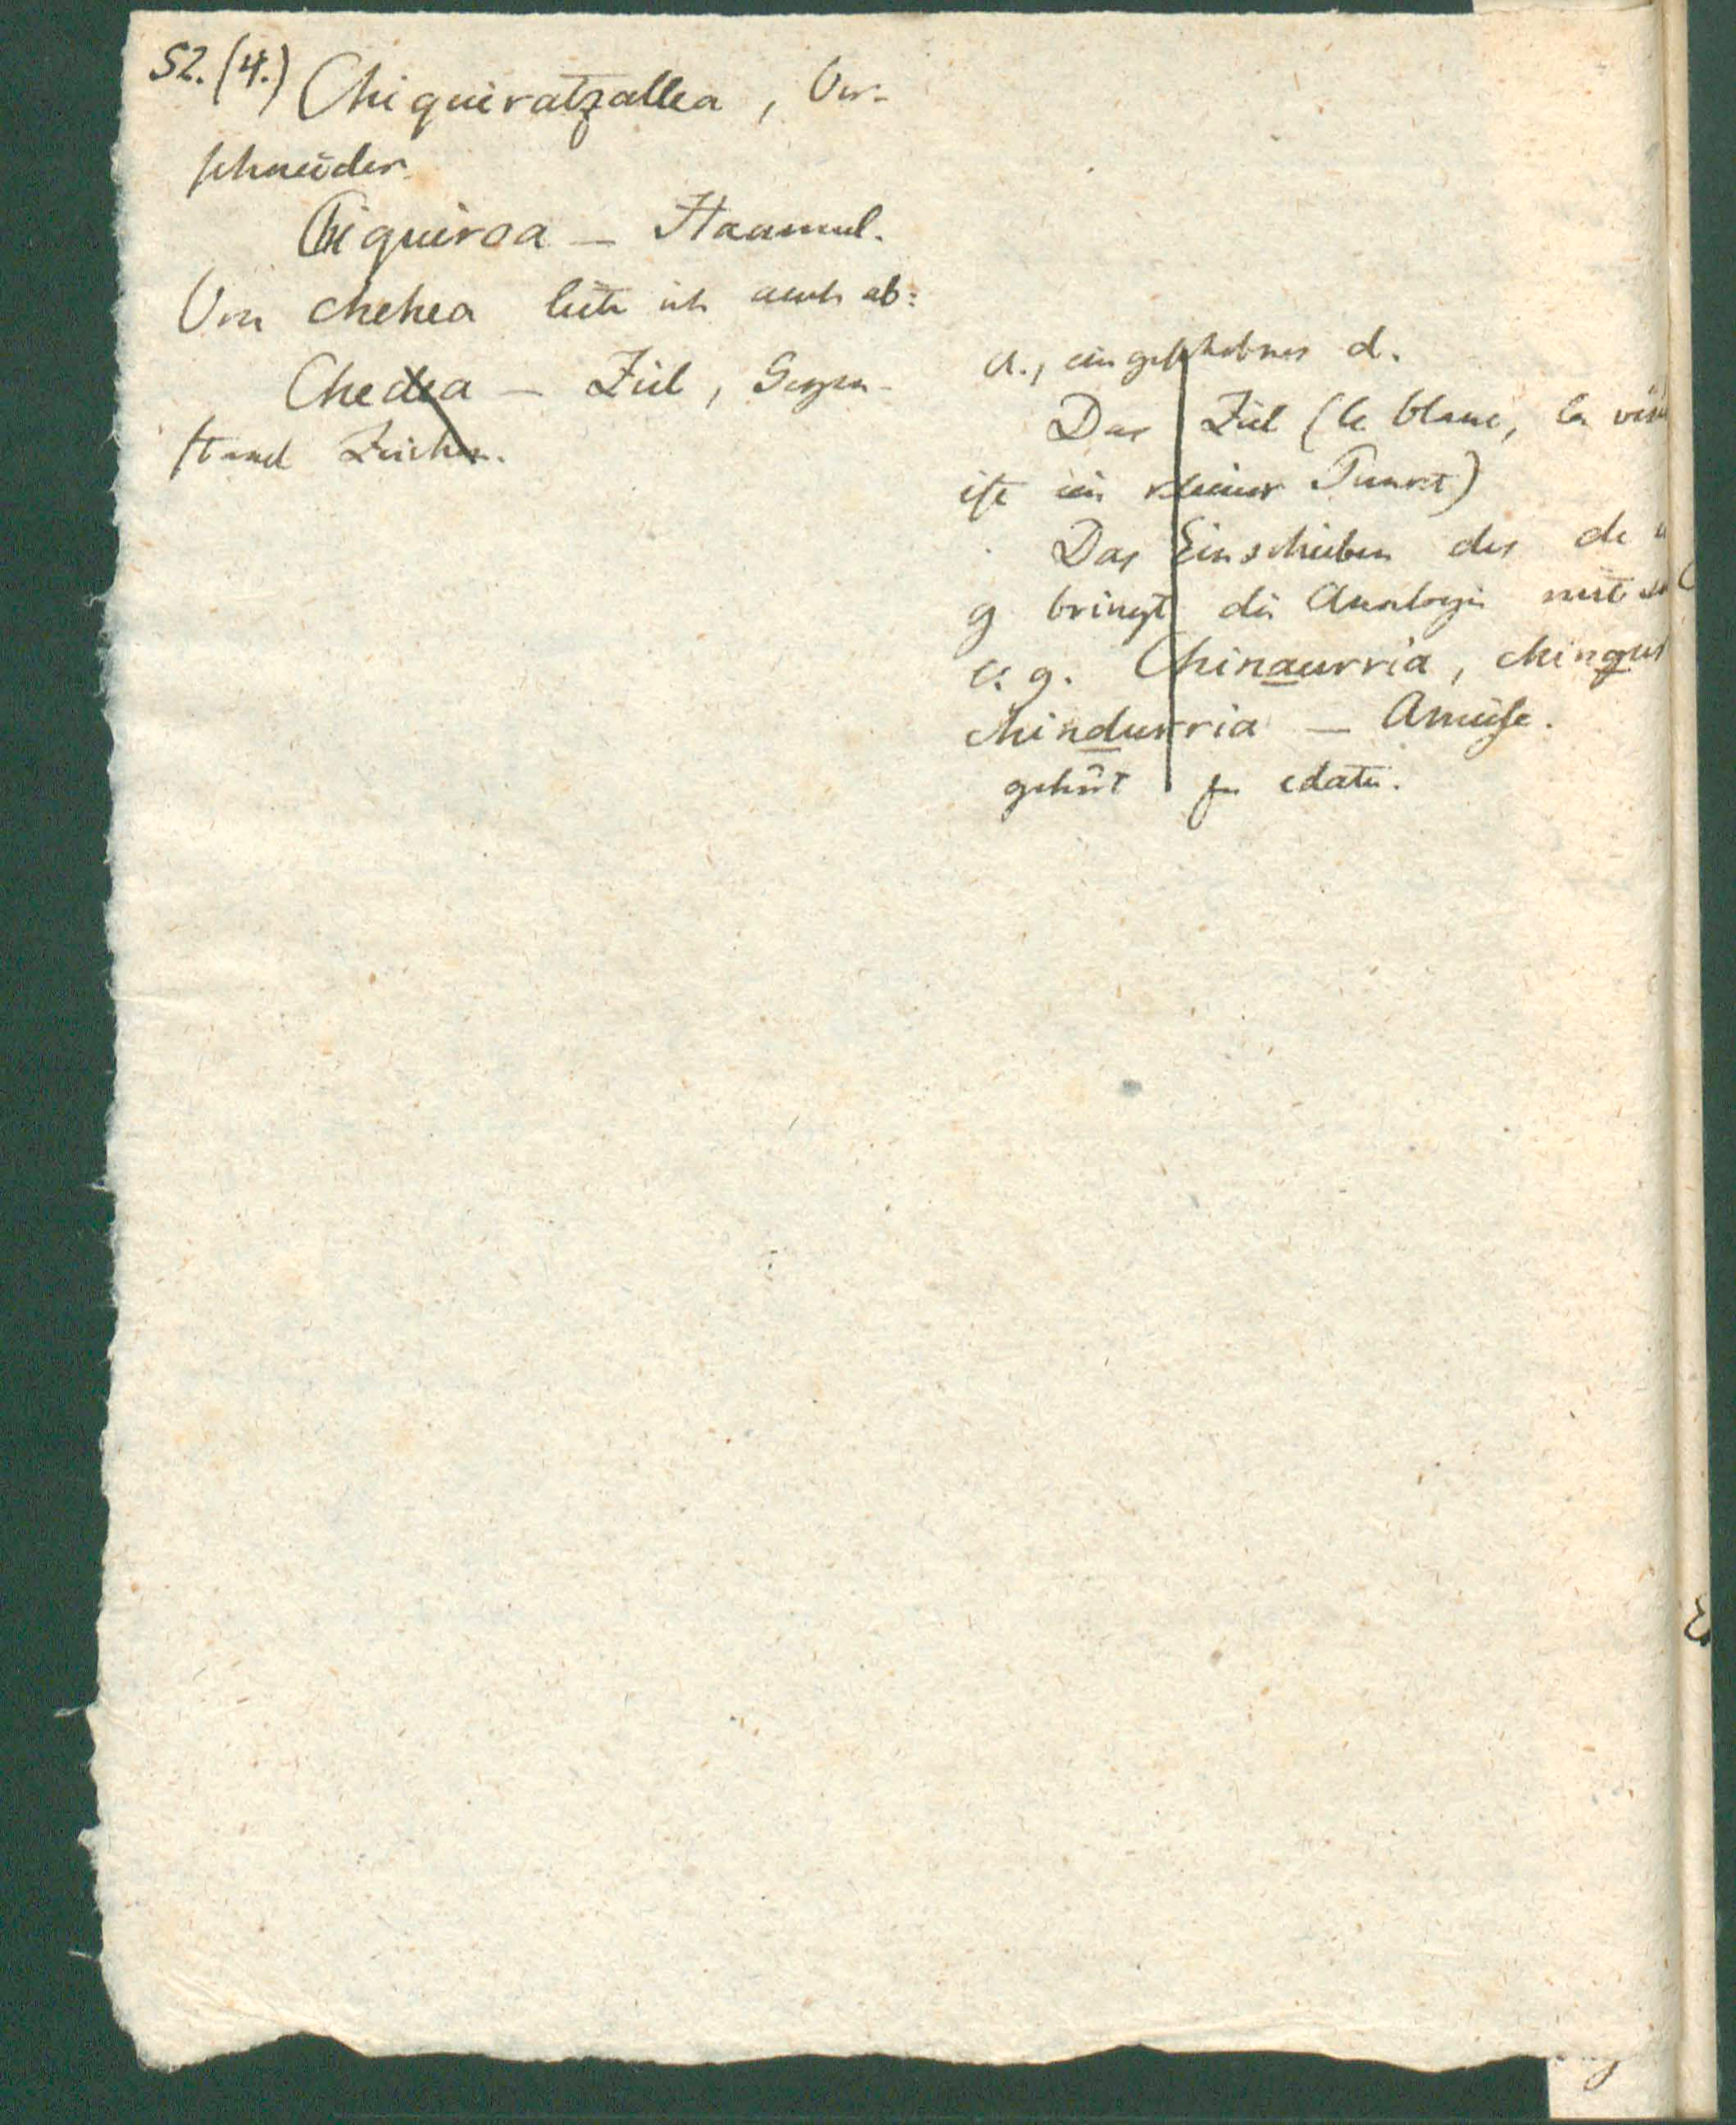 52. (4.) Chiquiratzallea, Ver-
schneider.
Chiquiroa — Haamul.
Von chehea leite ich auch ab:
Chedea — Ziel, Gegen-
stand Zeichen.
a., eingeschobnes d.
Das Ziel (le blanc, la
ist ein kleiner Punct)
Das Einschieben des d
g bringt die Analogie mit
e. g. Chinaurria, chingur
chindurria — Ameise.
gehört zu edatu.